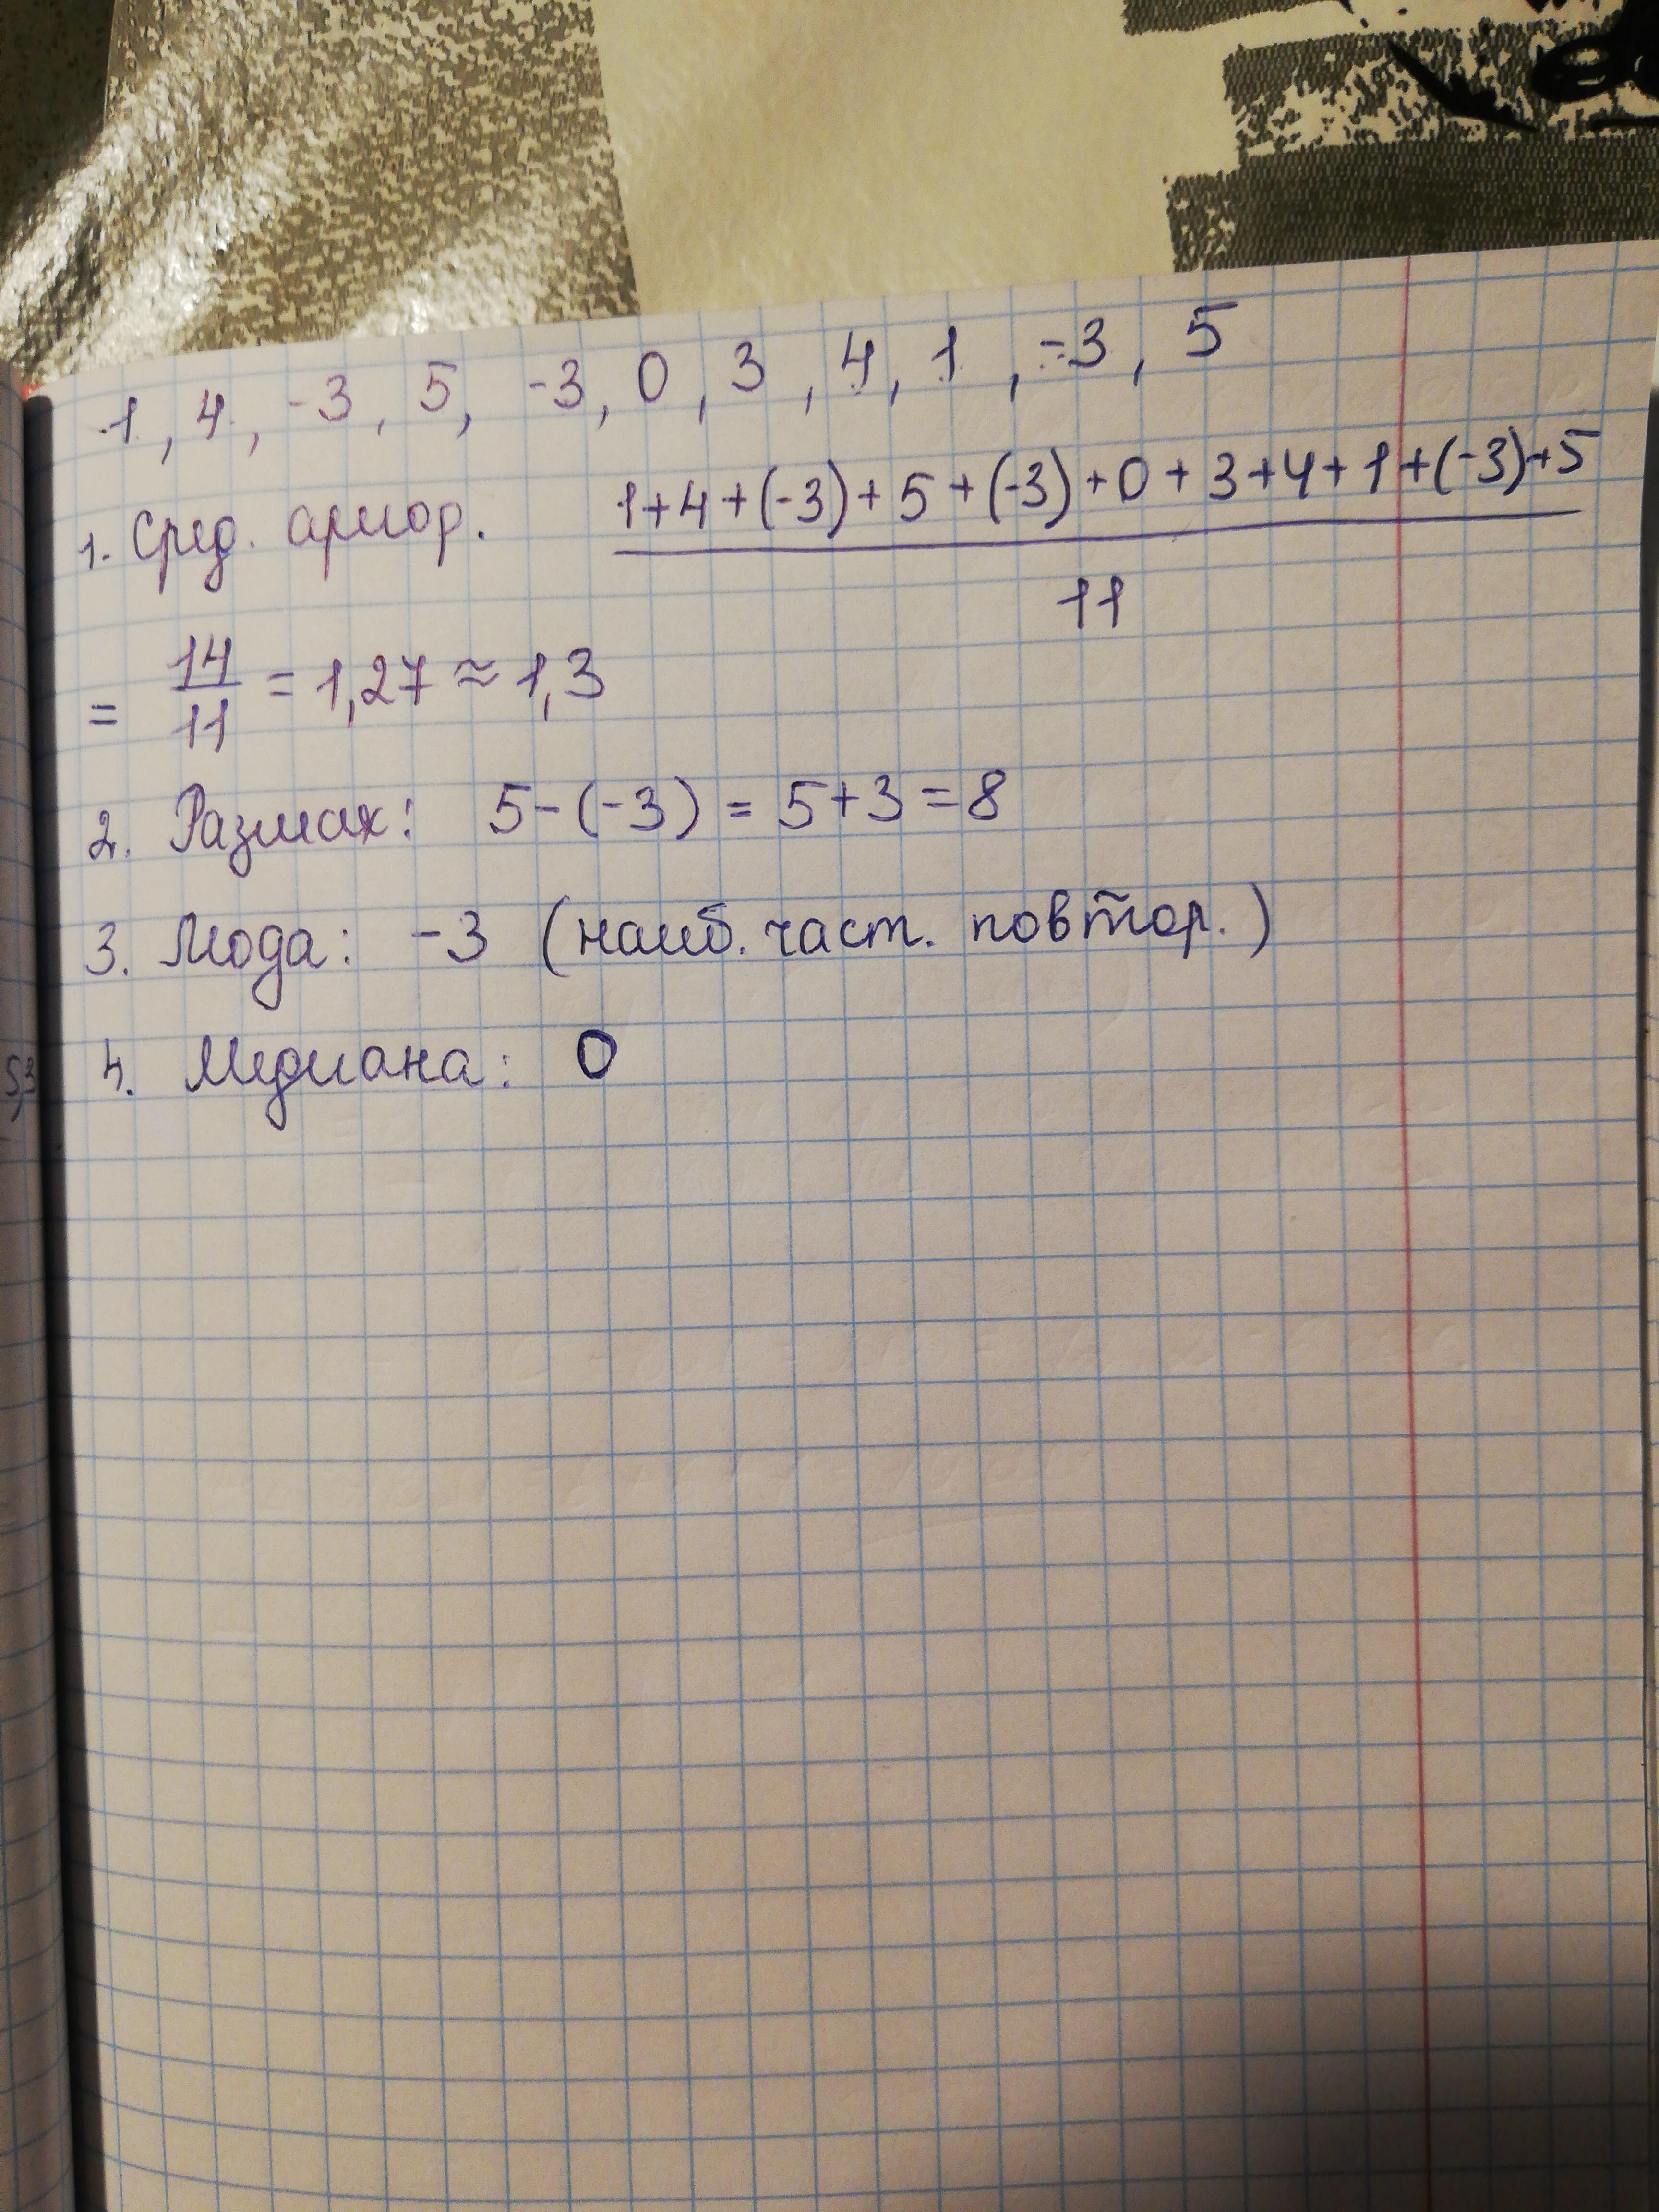 1, 4, -3, 5, -3, 0, 3, 4, 1, -3, 5
1. Сред. ариор. 1+4+(-3)+5+(-3)+0+3+4+1+(-3)+5
11
= 14/11 = 1,27 ≈ 1,3
2. Размах: 5-(-3) = 5+3=8
3. Мода: -3 (наиб. част. повтор.)
4. Медиана: 0